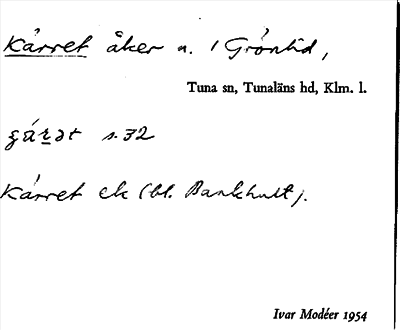 Kärret åker n. i Gröntid,
Tuna sn, Tunaläns hd, Klm. l.
s. 32
Kärret ek (bl. Bankhult).
Ivar Modéer 1954